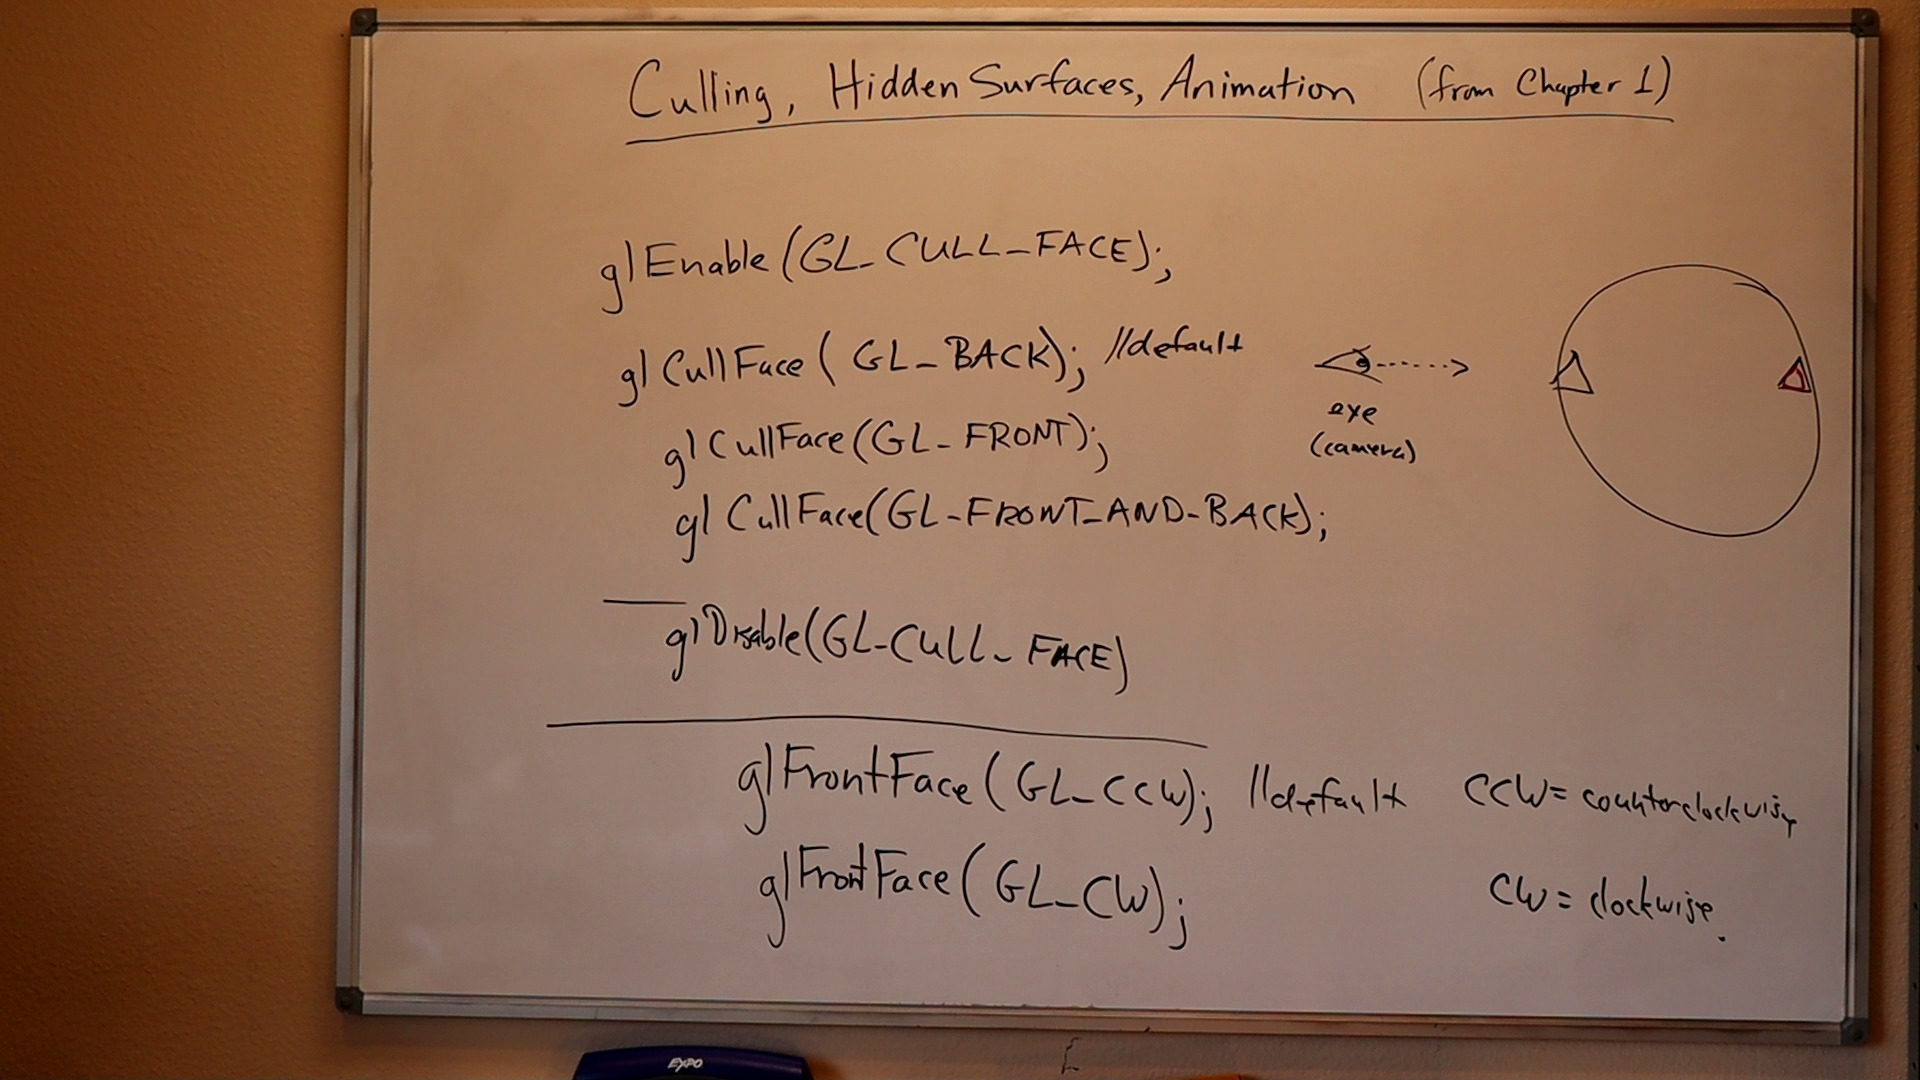 Culling, Hidden Surfaces, Animation (from Chapter 1)
glEnable(GL_CULL_FACE);
glCullFace(GL_BACK); //default
glCullFace(GL_FRONT);
glCullFace(GL_FRONT_AND_BACK);
eye
(camera)
glDisable(GL_CULL_FACE)
glFrontFace(GL_CCW); //default CCW = counterclockwise
glFrontFace(GL_CW); CW = clockwise.
EXPO